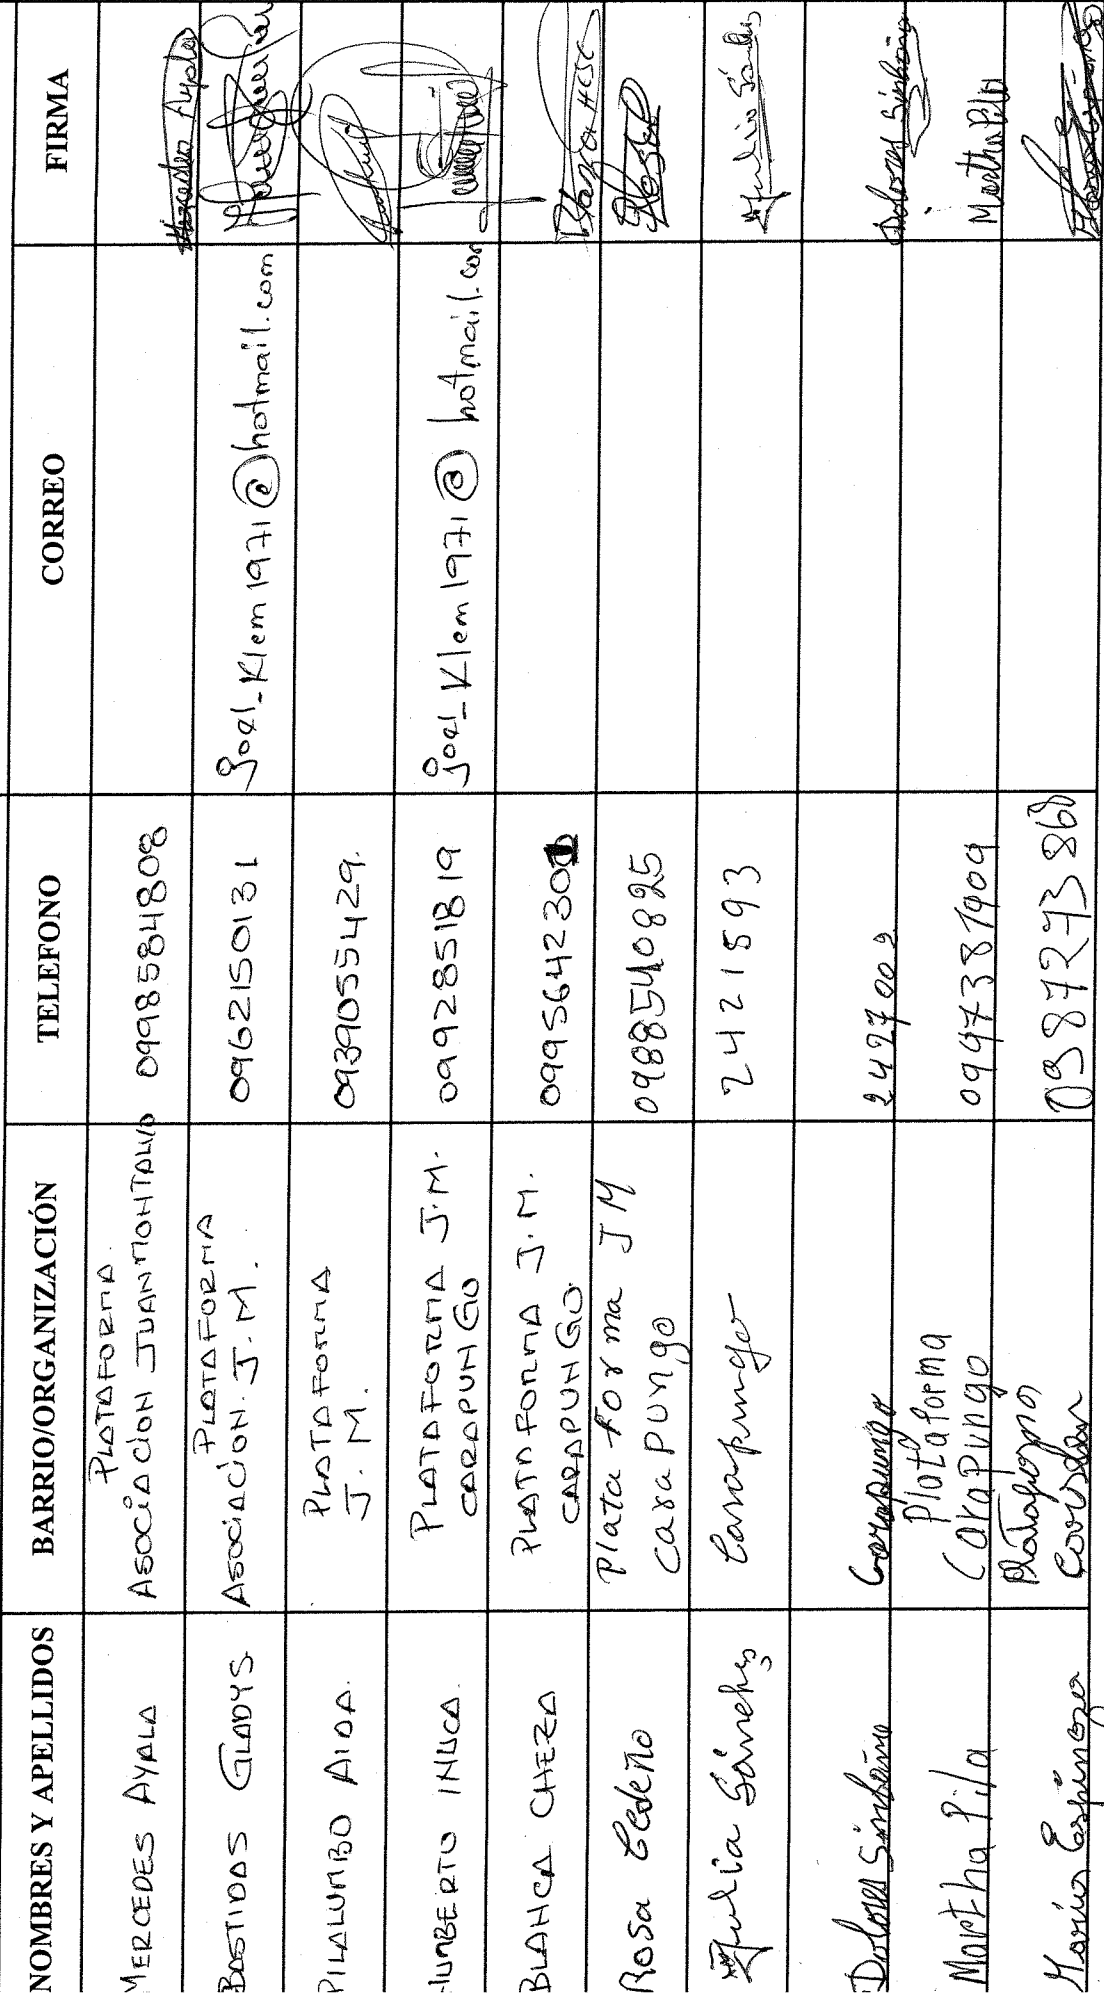 NOMBRES Y APELLIDOS BARRIO/ORGANIZACIÓN TELEFONO CORREO FIRMA
MERCEDES AYALA PLATAFORMA. ASOCIACION JUAN MONTALVO 0998584808 Mercedes Ayala
BASTIDAS GLADYS. PLATAFORMA ASOCIACIÓN. J. M. 0962150131 joel_Klem1971@hotmail.com
PILALUMBO AIDA. PLATAFORMA J. M. 0939055429.
HUMBERTO INUCA. PLATAFORMA J.M. CARAPUNGO 0992851819 joel_Klem1971@hotmail.com
BLANCA CHEZA PLATAFORMA J.M. CARAPUNGO. Blanca
Rosa Cedeño Plata forma J M Cara pungo 0988540825
Julia Sánchez Carapungo 2421593 Julia Sánchez
Dolores Simbaña Carapungo 2427002 Dolores Simbaña
Martha Pila Plataforma Carapungo 0997381909 Martha Pila
María Espinoza Plataforma 0987273868